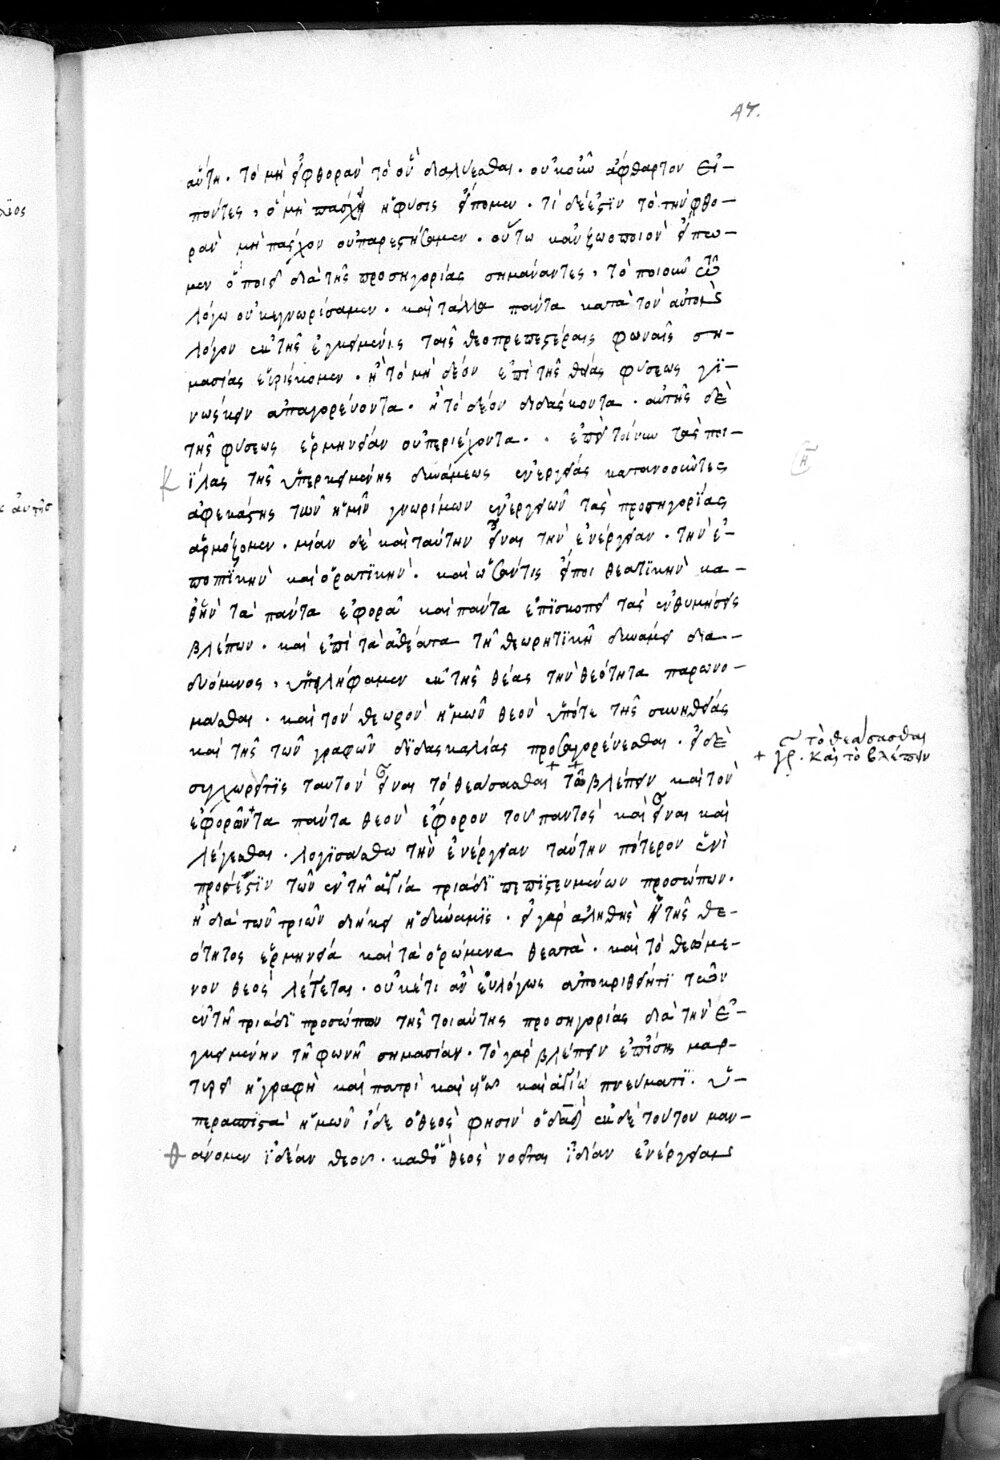 47.
αὕτη. τὸ μὴ φθορὰν τὸ οὐ διαλύεσθαι. οὐκοῦν ἄφθαρτον εἰ-
πόντες, ὃ μὴ πάσχει ἡ φύσις εἴπομεν. τί δέ ἐστϊν τὸ τὴν φθο-
ρὰν μὴ πάσχον οὐ παρεστήσαμεν. οὕτω κἂν ζωοποιὸν εἴπω-
μεν ὃ ποιεῖ διὰ τῆς προσηγορίας σημάναντες, τὸ ποιοῦν τῷ
λόγω οὐκ ἐγνωρίσαμεν. καὶ τἆλλα πάντα κατὰ τὸν αὐτὸν
λόγον ἐκ τῆς ἐγκειμένης ταῖς θεοπρεπεστέραις φωναῖς ση-
μασίας εὑρίσκομεν. ἢ τὸ μὴ δέον ἐπὶ τῆς θείας φύσεως γϊ-
νώσκειν ἀπαγορεύοντα. ἢ τὸ δέον διδάσκοντα. αὐτῆς δὲ
τῆς φύσεως ἑρμηνείαν οὐ περιέχοντα. ἐπεὶ τοίνυν τὰς ποι-
κϊλας τῆς ὑπερκειμένης δυνάμεως ἐνεργείας κατανοοῦντες
ἀφ ἑκάστης τῶν ἡμῖν γνωρίμων ἐνεργειῶν τὰς προσηγορίας
ἁρμόζομεν. μίαν δὲ καὶ ταύτην εἶναι τὴν ἐνέργειαν. τὴν ἐ-
ποπτϊκὴν καὶ ὁρατϊκὴν. καὶ ὡς ἄν τις εἴποι θεατϊκὴν κα-
θ ἣν τὰ πάντα ἐφορᾶ καὶ πάντα ἐπϊσκοπεῖ τὰς ἐνθυμήσεις
βλέπων. καὶ ἐπὶ τὰ ἀθέατα τῆ θεωρητϊκῆ δυνάμει δια-
δυόμενος, ὑπειλήφαμεν ἐκ τῆς θέας τὴν θεότητα παρωνο-
μάσθαι. καὶ τὸν θεωρὸν ἡμῶν θεὸν ὑπό τε τῆς συνηθείας
καὶ τῆς τῶν γραφῶν διδασκαλίας προσαγορεύεσθαι. εἰ δὲ
συγχωρεῖ τϊς ταυτὸν εἶναι τὸ θεάσασθαι τῶ βλέπειν καὶ τὸν
ἐφορῶντα πάντα θεὸν ἔφορον τοῦ παντὸς καὶ εἶναι καὶ
λέγεσθαι. λογϊσάσθω τὴν ἐνέργειαν ταύτην πότερον ἑνὶ
πρόσεστϊν τῶν ἐν τῆ ἁγία τριάδϊ πεπϊστευμένων προσώπων.
ἢ διὰ τῶν τριῶν διήκει ἡ δύναμϊς. εἰ γὰρ ἀληθὴς ἡ τῆς θε-
ότητος ἑρμηνεία καὶ τὰ ὁρώμενα θεατὰ. καὶ τὸ θεώμε-
νον θεὸς λέγεται. οὐκέτι ἂν εὐλόγως ἀποκριθείη τϊ τῶν
ἐν τῆ τριάδϊ προσώπων τῆς τοιαύτης προσηγορίας διὰ τὴν ἐ-
γκειμένην τῆ φωνῆ σημασίαν. τὸ γὰρ βλέπειν ἐπίσης μαρ-
τυρεῖ ἡ γραφὴ καὶ πατρὶ καὶ υἱῶ καὶ ἁγίω πνεύματϊ. ὑ-
περασπϊστὰ ἡμῶν ἴδε ὁ θεὸς φησὶν ὁ δαδ ἐκ δὲ τούτου μαν-
θάνομεν ϊδίαν θεοῦ. καθὸ θεὸς νοεῖται ϊδίαν ἐνέργειαν
τὸ θεάσασθαι
+ γρ. καὶ τὸ βλέπειν